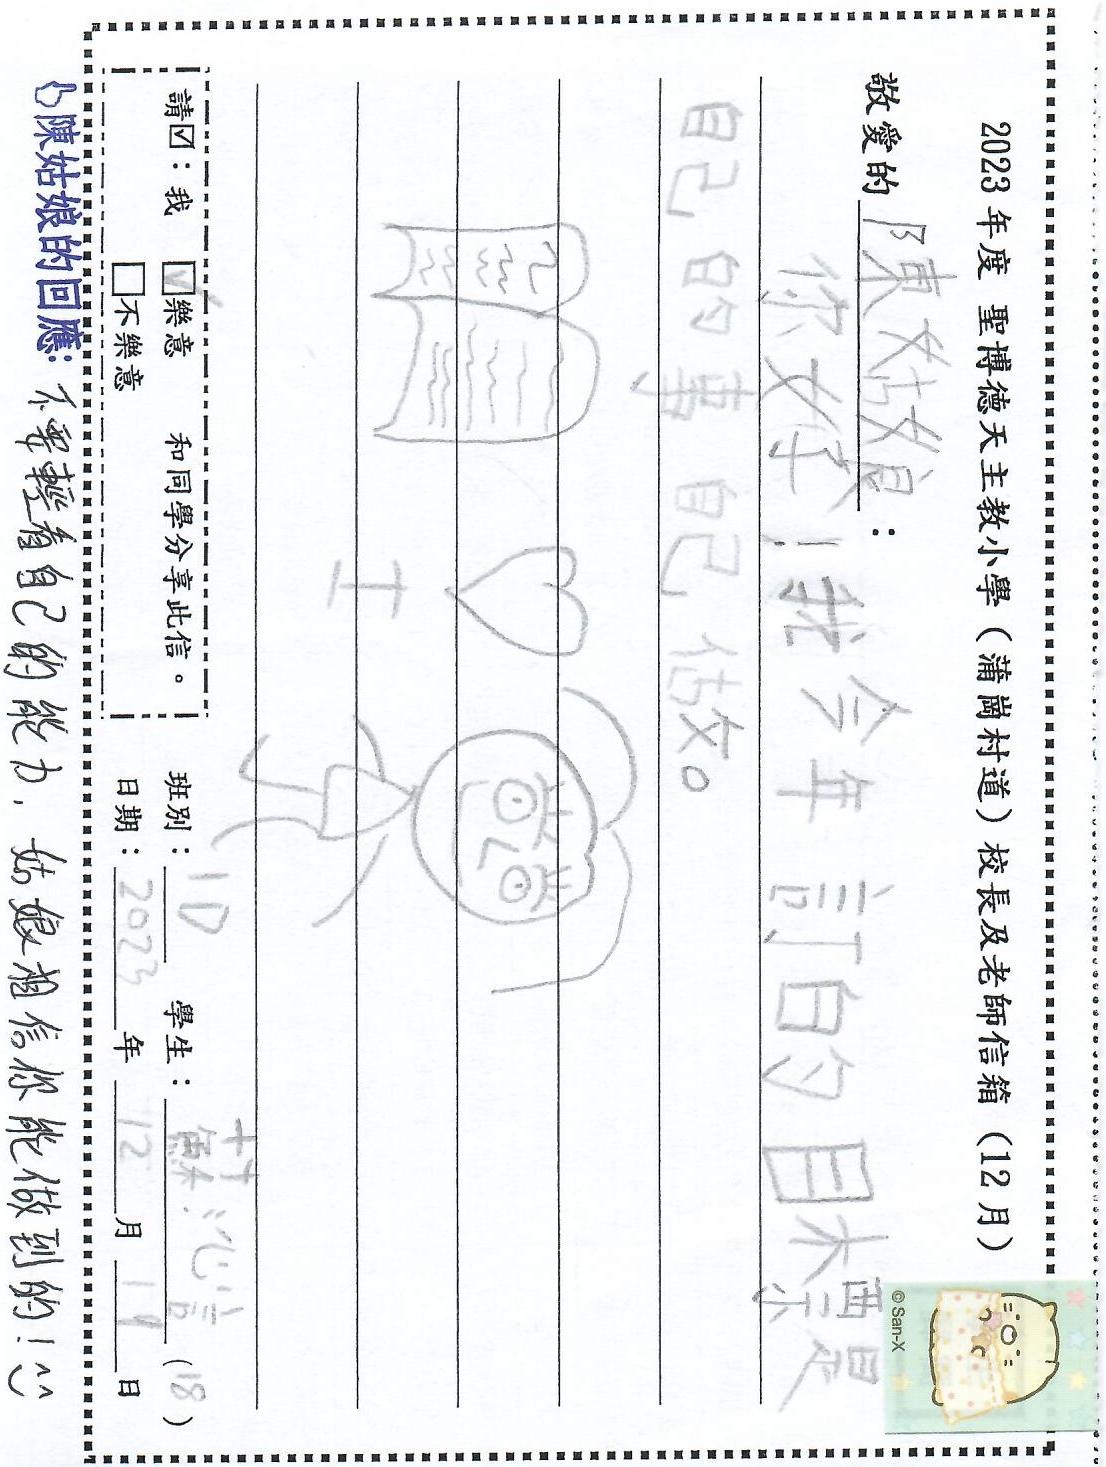 2023 年度 聖博德天主教小學(蒲崗村道)校長及老師信箱(12月)
© San-X
敬愛的 陳姑娘:
你好!我今年訂的目標是
自己的事自己做。
請☑:我 ☑樂意 和同學分享此信。
□不樂意
班別: 1D 學生: 蘇沁言 (18)
日期: 2023 年 12 月 19 日
陳姑娘的回應: 不要輕看自己的能力,姑娘相信你能做到的!